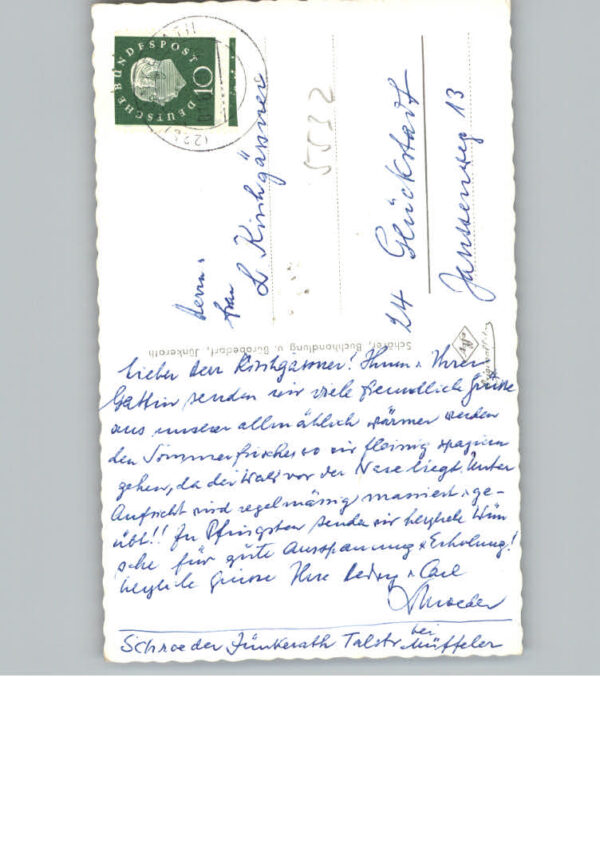 DEUTSCHE BUNDESPOST
10
5532
Herrn u.
Frau
L Kirchgässner
24 Glückstadt
Janssenweg 13
Schäfer, Buchhandlung u. Bürobedarf, Jünkerath
Lieber Herr Kirchgässner! Ihnen u. Ihrer
Gattin senden wir viele freundlich Grüsse
aus unserer allmählich wärmer werden
den Sommerfrische wo wir fleissig spazieren
gehen, da der Wald vor der Nase liegt. Unter
Aufsicht wird regelmässig massiert u. ge-
übt!! Zu Pfingsten senden wir herzliche Wün
sche für gute Ausspannung u. Erholung!
herzliche Grüsse Ihre u. Carl
Schroeder
Schroeder Jünkerath Talstr bei Müffeler